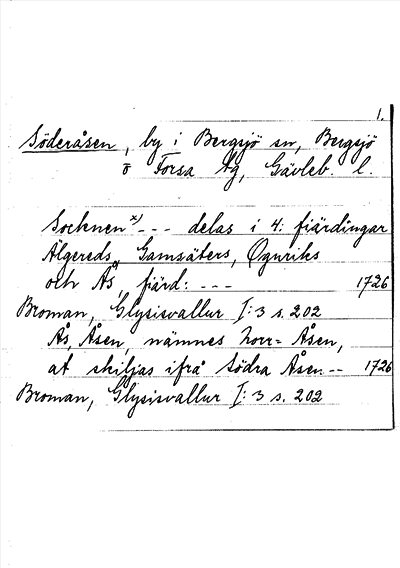 1.
Söderåsen, by i Bergsjö sn, Bergsjö
o Forsa tg, Gävleb. l.
Socknen x) --- delas i 4: fiärdingar
Älgereds, Gamsäters, Øgnriks
och Ås, fiärd: --- 1726
Broman, Glysisvallur I:3 s. 202
Ås, Åsen, nämnes Norr-Åsen,
at skiljas ifrå Södra Åsen -- 1726
Broman, Glysisvallur I:3 s. 202